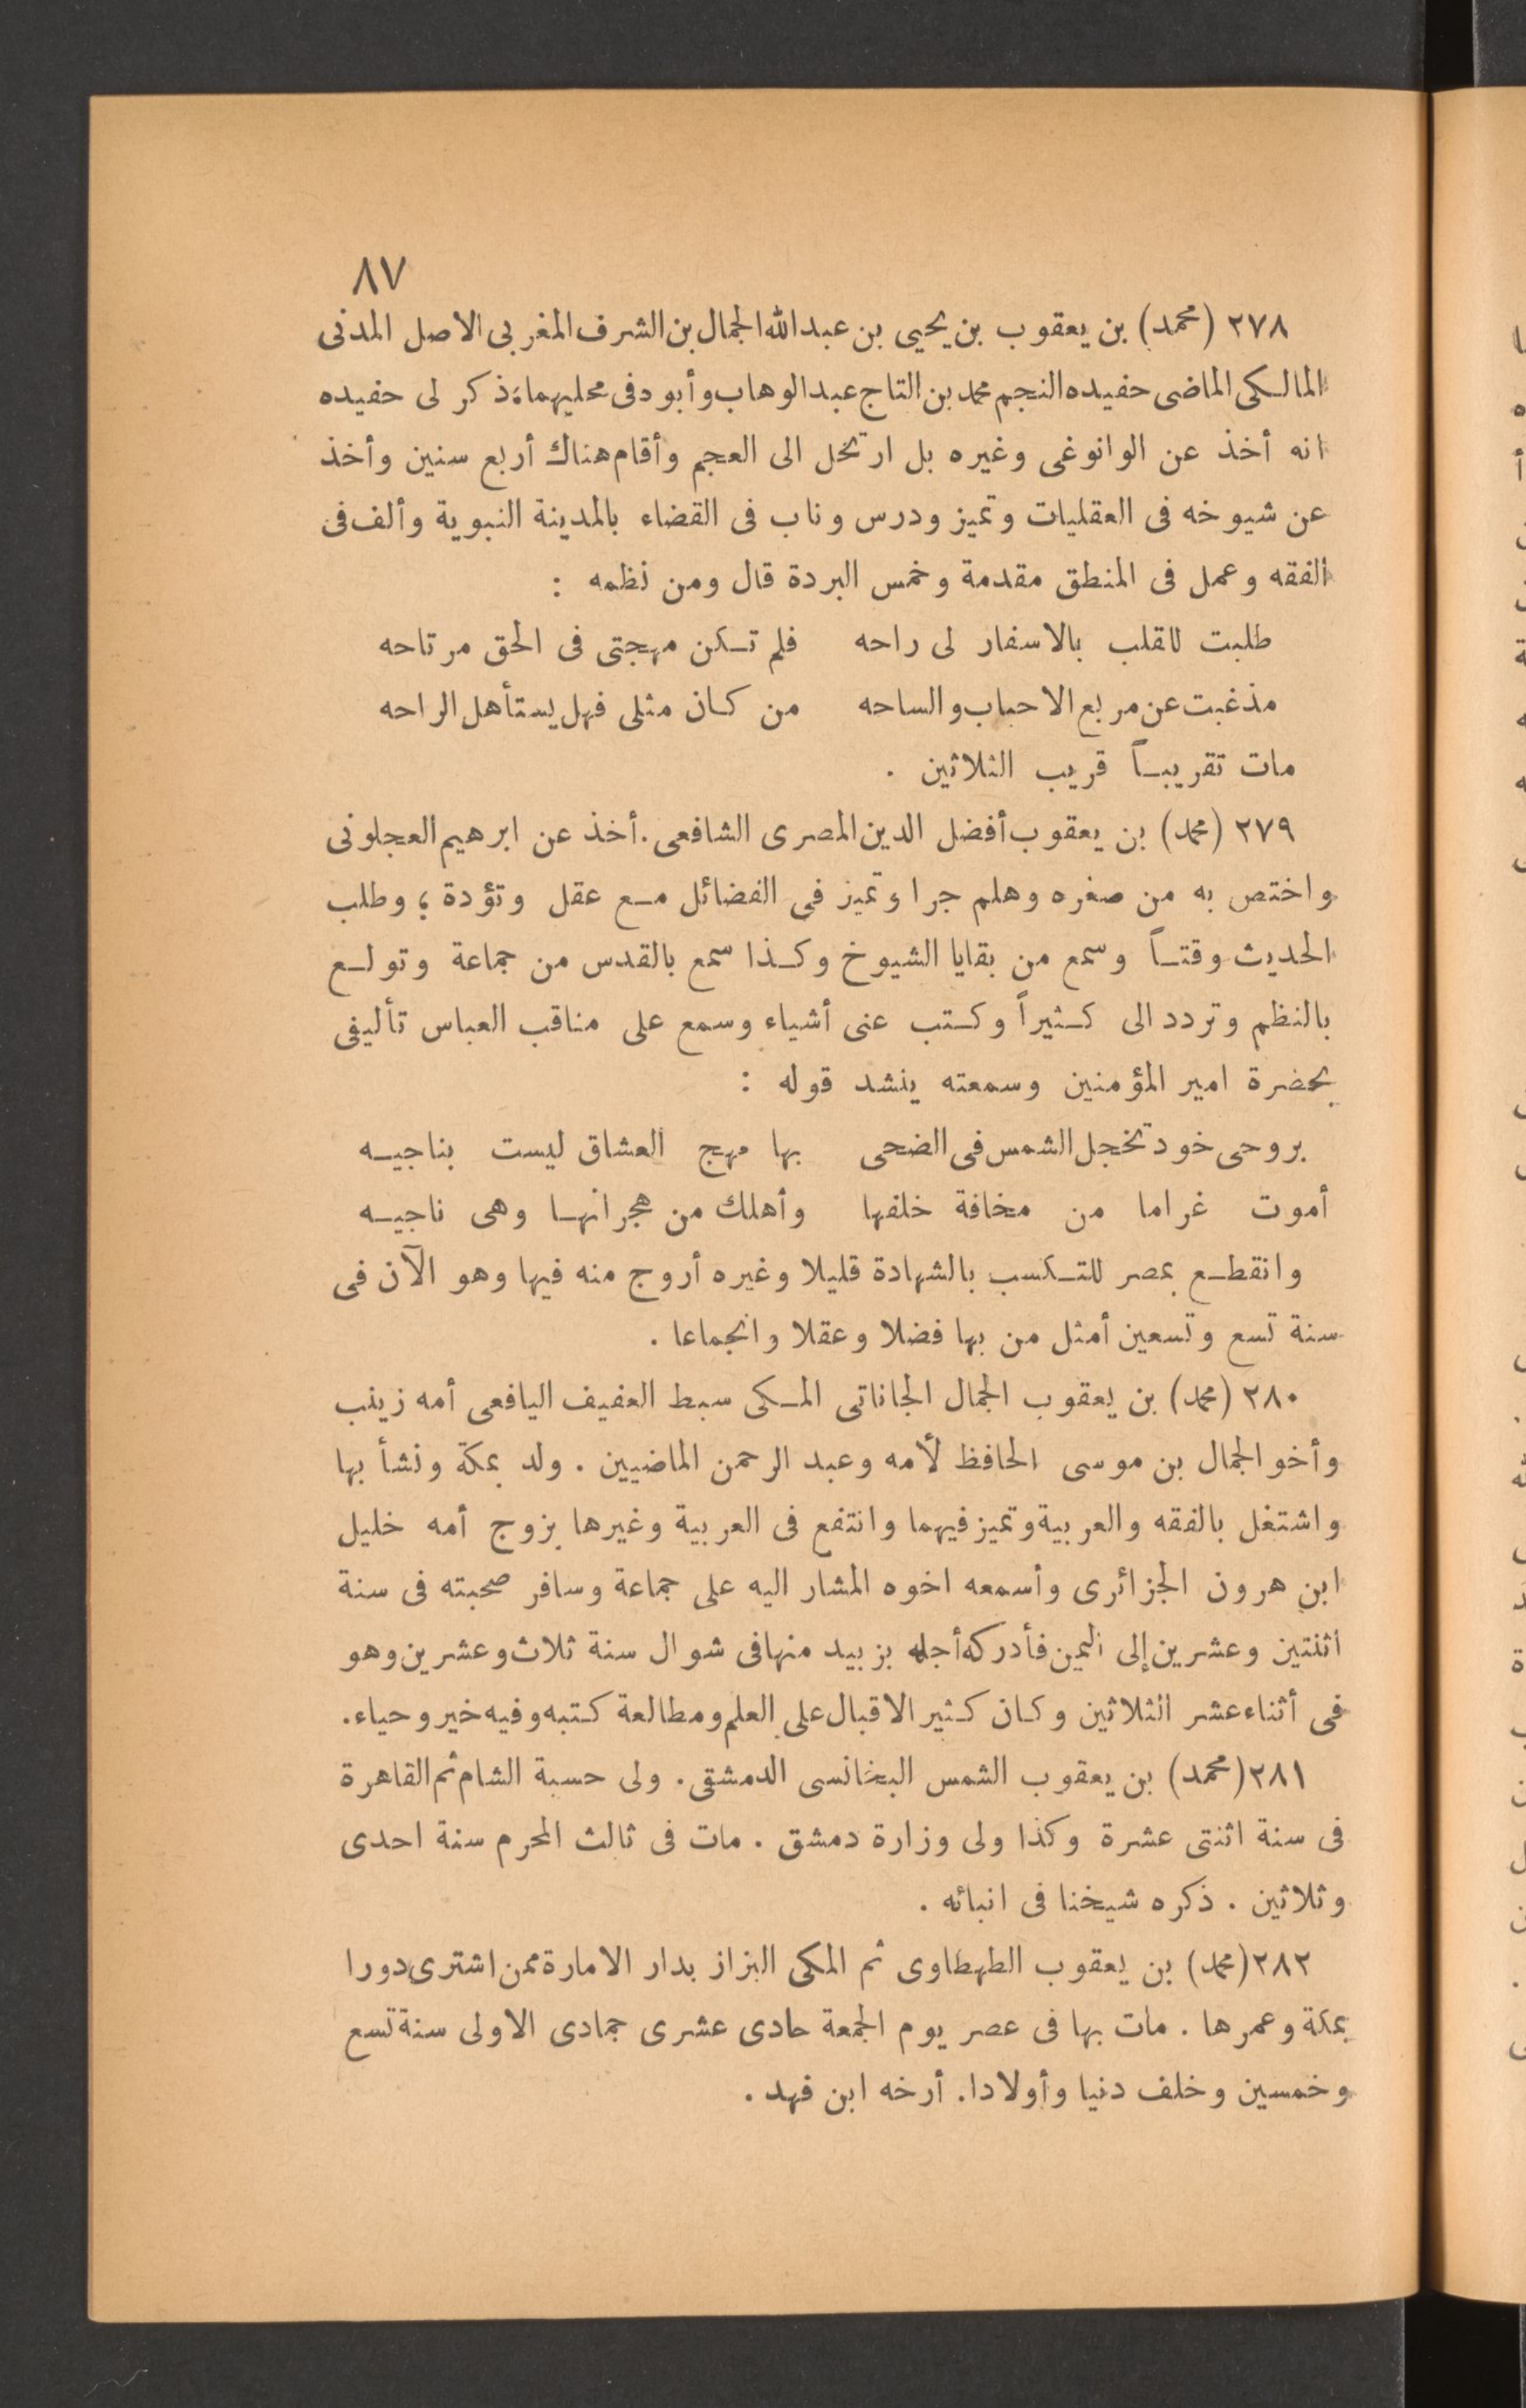 ٨٧
٢٧٨ (محمد) بن يعقوب بن يحيى بن عبد الله الجمال بن الشرف المغربى الاصل المدنى
المالكى الماضى حفيده النجم محمد بن التاج عبد الوهاب وأبوه فى محليهما، ذكر لى حفيده
انه أخذ عن الوانوغى وغيره بل ارتحل الى العجم وأقام هناك أربع سنين وأخذ
عن شيوخه فى العقليات وتميز ودرس وناب فى القضاء بالمدينة النبوية وألف فى
الفقه وعمل فى المنطق مقدمة وخمس البردة قال ومن نظمه :
طلبت للقلب بالاسفار لى راحه فلم تكن مهجتى فى الحق مرتاحه
مذ غبت عن مربع الاحباب والساحه من كان مثلى فهل يستأهل الراحه
مات تقريباً قريب الثلاثين .
٢٧٩ (محمد) بن يعقوب أفضل الدين المصرى الشافعى . أخذ عن ابرهيم العجلونى
واختص به من صغره وهلم جرا وتميز فى الفضائل مع عقل وتؤدة ؛ وطلب
الحديث وقتاً وسمع من بقايا الشيوخ وكذا سمع بالقدس من جماعة وتولع
بالنظم وتردد الى كثيراً وكتب عنى أشياء وسمع على مناقب العباس تأليفى
بحضرة امير المؤمنين وسمعته ينشد قوله :
بروحى خود تخجل الشمس فى الضحى بها مهج العشاق ليست بناجيه
أموت غراما من مخافة خلفها وأهلك من هجرانها وهى ناجيه
وانقطع بمصر للتكسب بالشهادة قليلا وغيره أروج منه فيها وهو الآن فى
سنة تسع وتسعين أمثل من بها فضلا وعقلا وانجماعا .
٢٨٠ (محمد) بن يعقوب الجمال الجاناتى المكى سبط العفيف اليافعى أمه زينب
وأخو الجمال بن موسى الحافظ لأمه وعبد الرحمن الماضيين . ولد بمكة ونشأ بها
واشتغل بالفقه والعربية وتميز فيهما وانتفع فى العربية وغيرها بزوج أمه خليل
ابن هرون الجزائرى وأسمعه اخوه المشار اليه على جماعة وسافر صحبته فى سنة
اثنتين وعشرين إلى اليمن فأدركه أجله بزبيد منها فى شوال سنة ثلاث وعشرين وهو
فى أثناء عشر الثلاثين وكان كثير الاقبال على العلم ومطالعة كتبه وفيه خير وحياء.
٢٨١ (محمد) بن يعقوب الشمس البخانسى الدمشقى . ولى حسبة الشام ثم القاهرة
فى سنة اثنتى عشرة وكذا ولى وزارة دمشق . مات فى ثالث المحرم سنة احدى
وثلاثين . ذكره شيخنا فى انبائه .
٢٨٢ (محمد) بن يعقوب الطهطاوى ثم المكى البزاز بدار الامارة ممن اشترى دورا
بمكة وعمرها . مات بها فى عصر يوم الجمعة حادى عشرى جمادى الاولى سنة تسع
وخمسين وخلف دنيا وأولادا . أرخه ابن فهد .